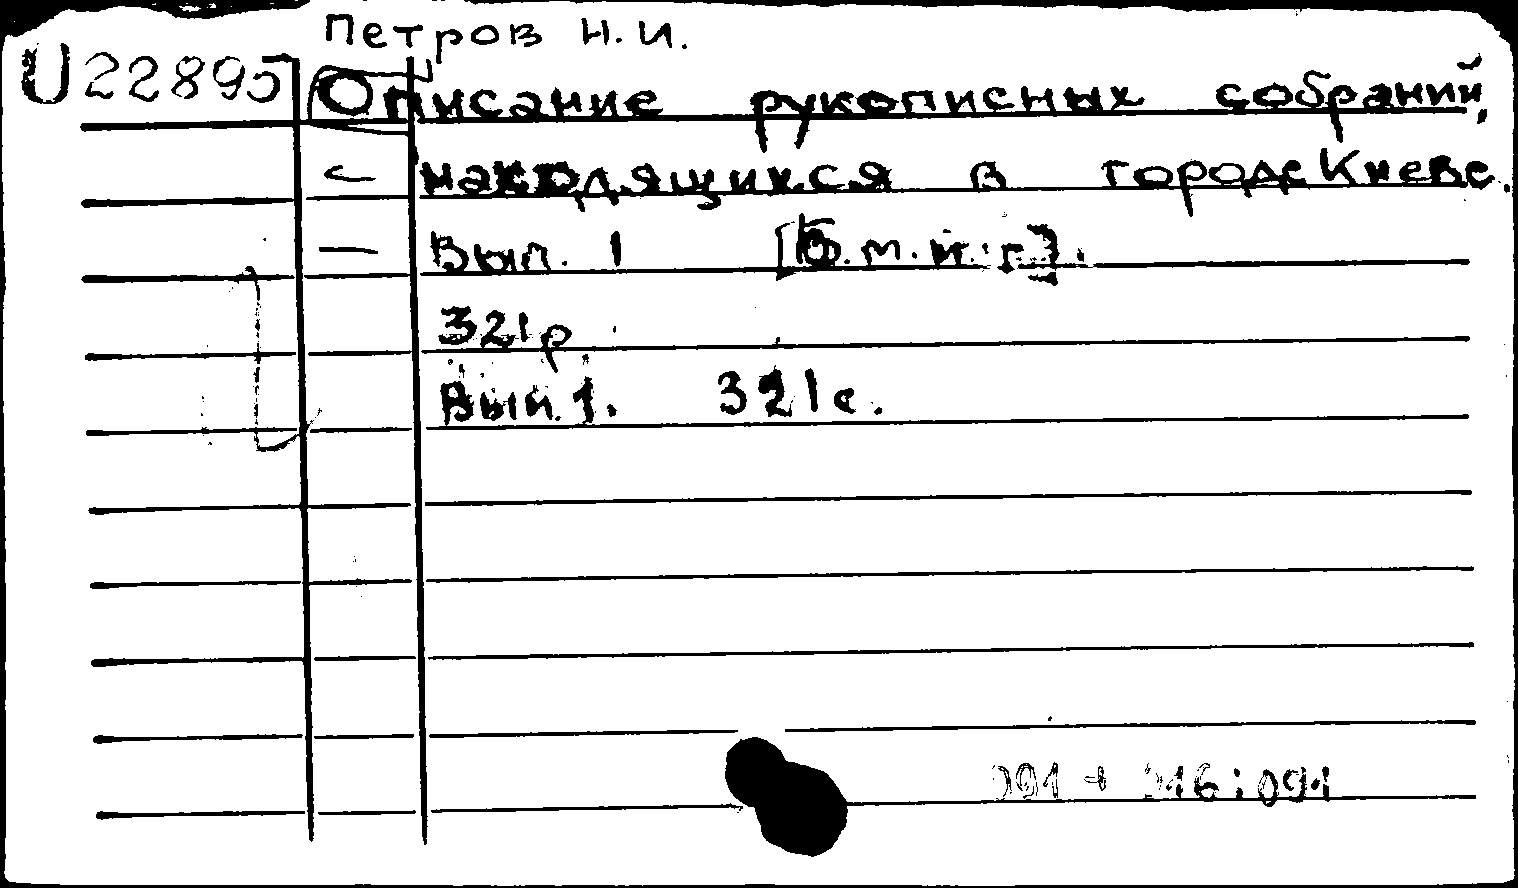 Петров Н.И.
U 22895 Описание рукописных собраний,
находящихся в городе Киеве.
— Вып. 1 [Б.м.и.г.].
321р
Вып. 1. 321с.
091 + 016:091